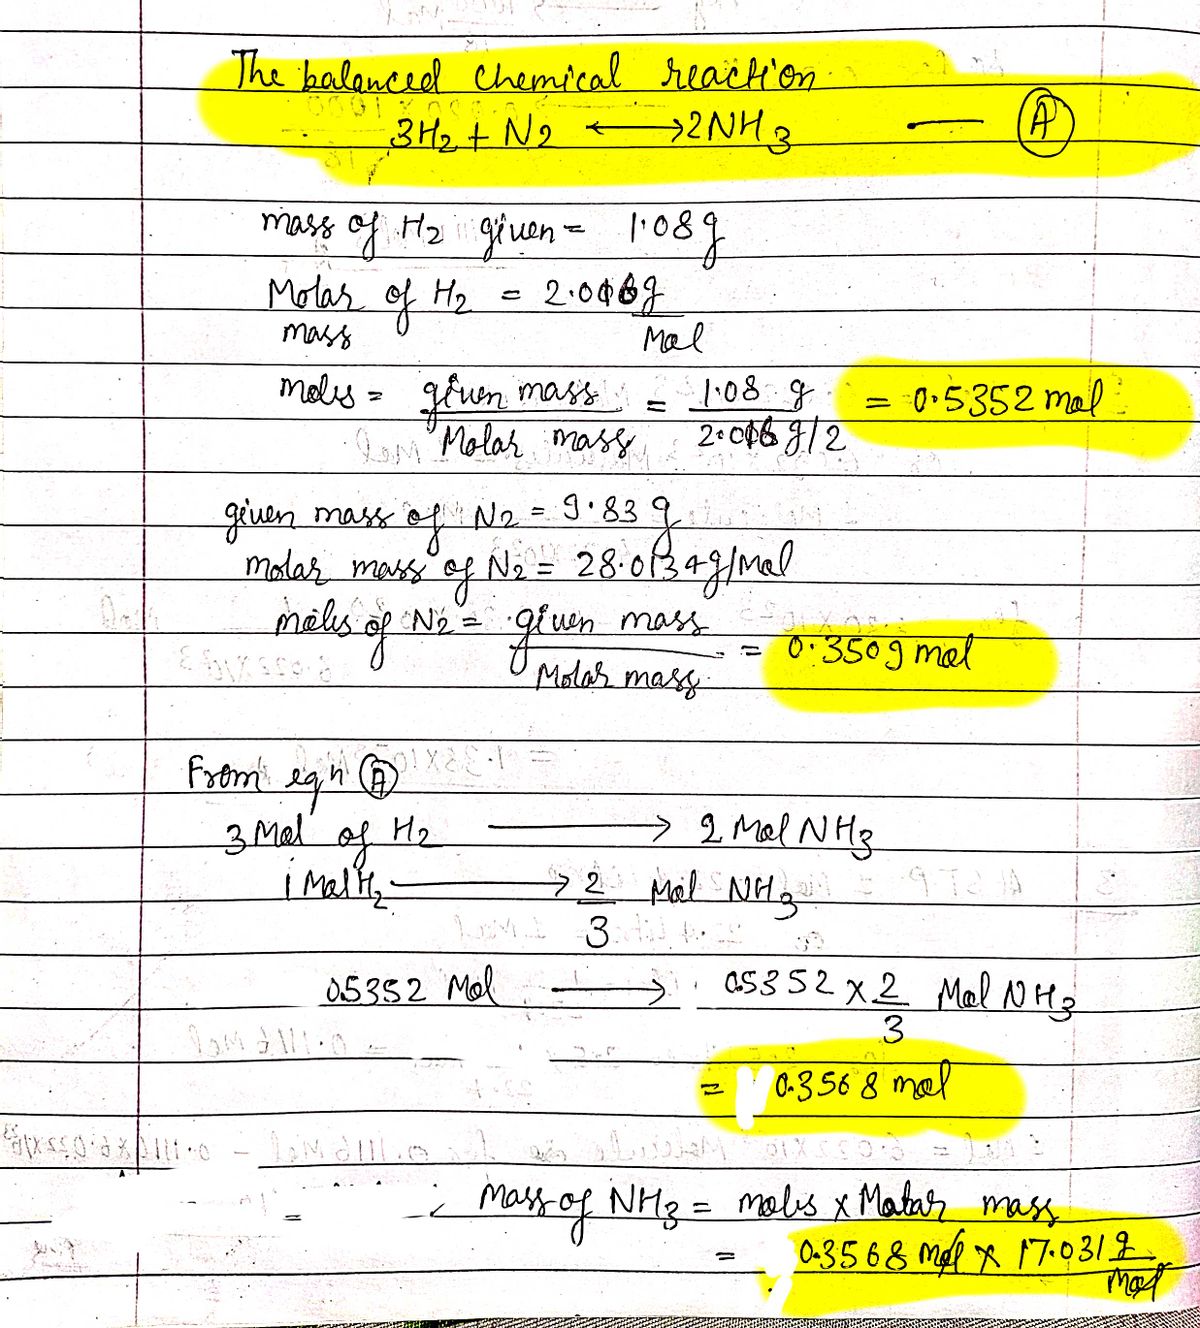 The balanced chemical reaction
3H2 + N2 ⟷ 2NH3 — (A)
mass of H2 given = 1.08g
Molar of H2 = 2.016g
mass Mol
moles = given mass = 1.08 g = 0.5352 mol
Molar mass 2.016 g/2
given mass of N2 = 9.83 g
molar mass of N2 = 28.0134g/Mol
moles of N2 = given mass = 0.3509 mol
Molar mass
From eqn (A)
3 Mol of H2 ⟶ 2 Mol NH3
1 Mol H2 ⟶ 2 Mol NH3
3
0.5352 Mol ⟶ 0.5352 x 2 Mol NH3
3
= 0.3568 mol
Mass of NH3 = moles x Molar mass
= 0.3568 mol x 17.031 g
Mol